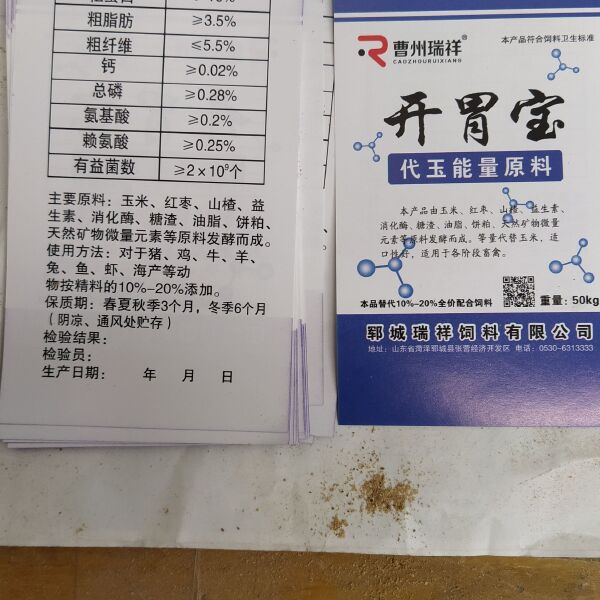 粗脂肪 ≥3.5%
粗纤维 ≤5.5%
钙 ≥0.02%
总磷 ≥0.28%
氨基酸 ≥0.2%
赖氨酸 ≥0.25%
有益菌数 ≥2×10⁹个
主要原料：玉米、红枣、山楂、益
生素、消化酶、糖渣、油脂、饼粕、
天然矿物微量元素等原料发酵而成。
使用方法：对于猪、鸡、牛、羊、
兔、鱼、虾、海产等动
物按精料的10%–20%添加。
保质期：春夏秋季3个月，冬季6个月
（阴凉、通风处贮存）
检验结果：
检验员：
生产日期： 年 月 日
曹州瑞祥
CAOZHOURUIXIANG
本产品符合饲料卫生标准
开胃宝
代玉能量原料
本产品由玉米、红枣、山楂、益生素、
消化酶、糖渣、油脂、饼粕、天然矿物微量
元素等原料发酵而成。等量代替玉米，适
口性好，适用于各阶段畜禽。
本品替代10%–20%全价配合饲料
重量：50kg
郓城瑞祥饲料有限公司
地址：山东省菏泽郓城县张营经济开发区 电话：0530-6313333